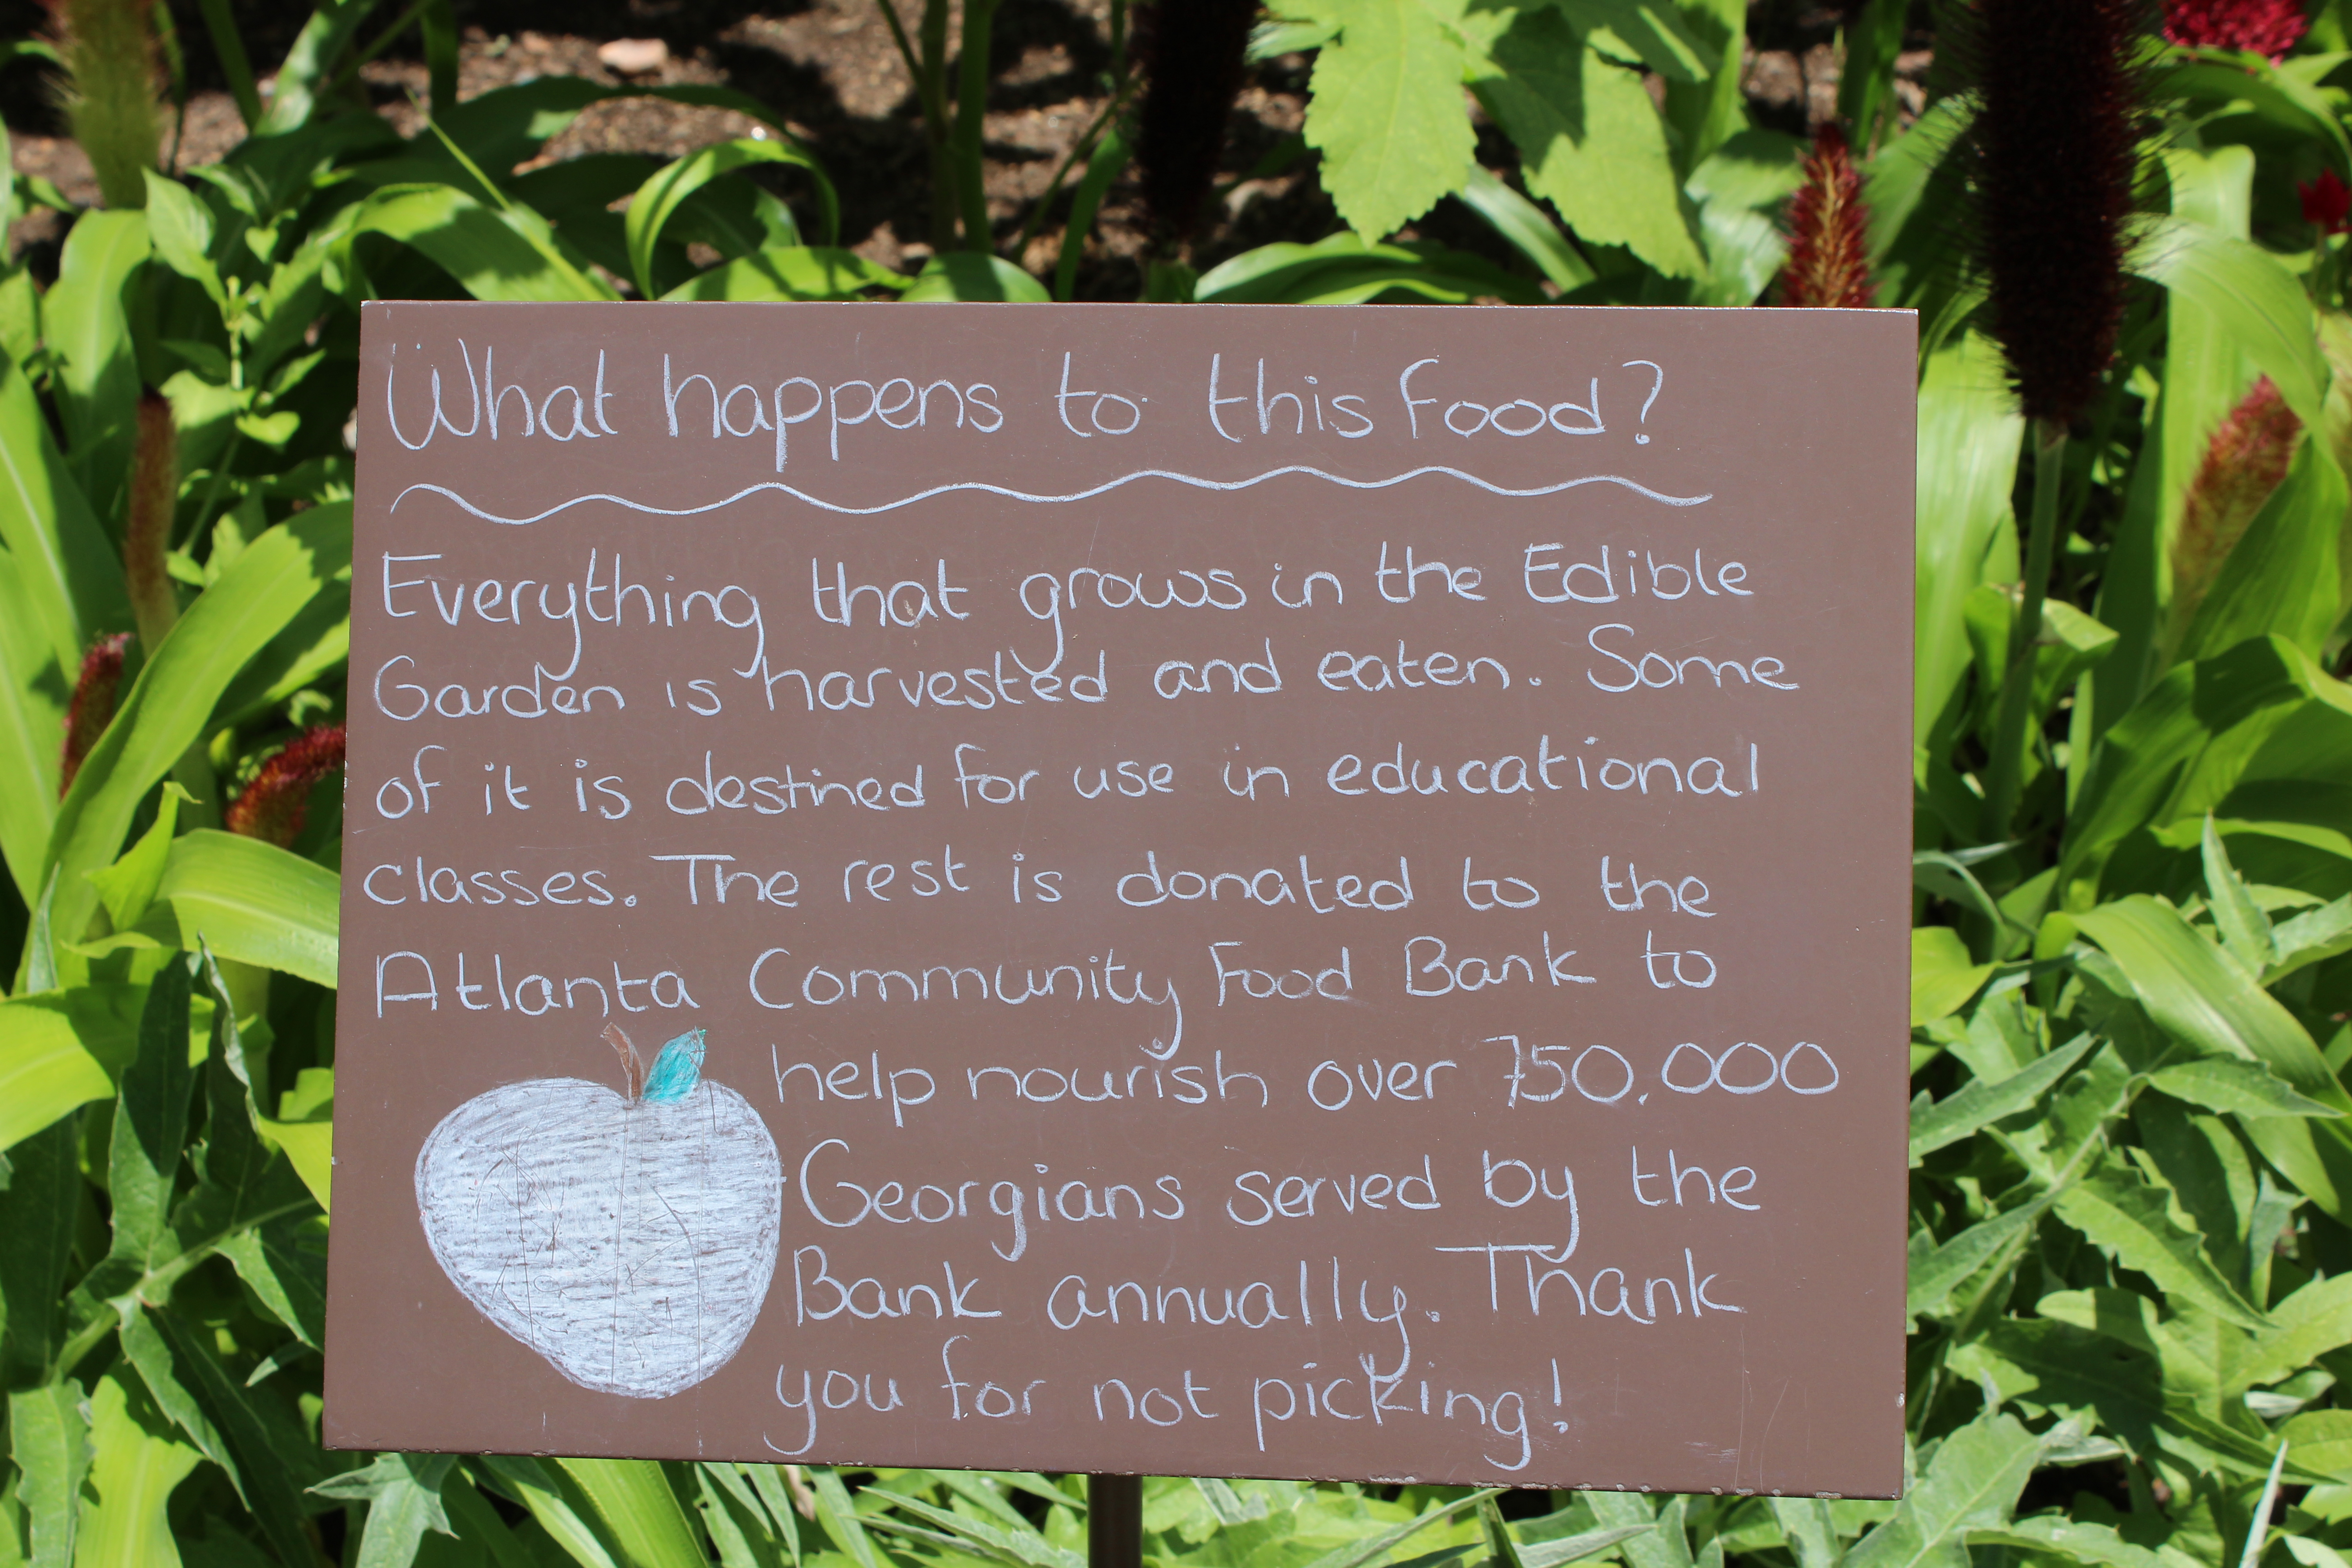 What happens to this food?
Everything that grows in the Edible
Garden is harvested and eaten. Some
of it is destined for use in educational
classes. The rest is donated to the
Atlanta Community Food Bank to
help nourish over 750,000
Georgians served by the
Bank annually. Thank
you for not picking!